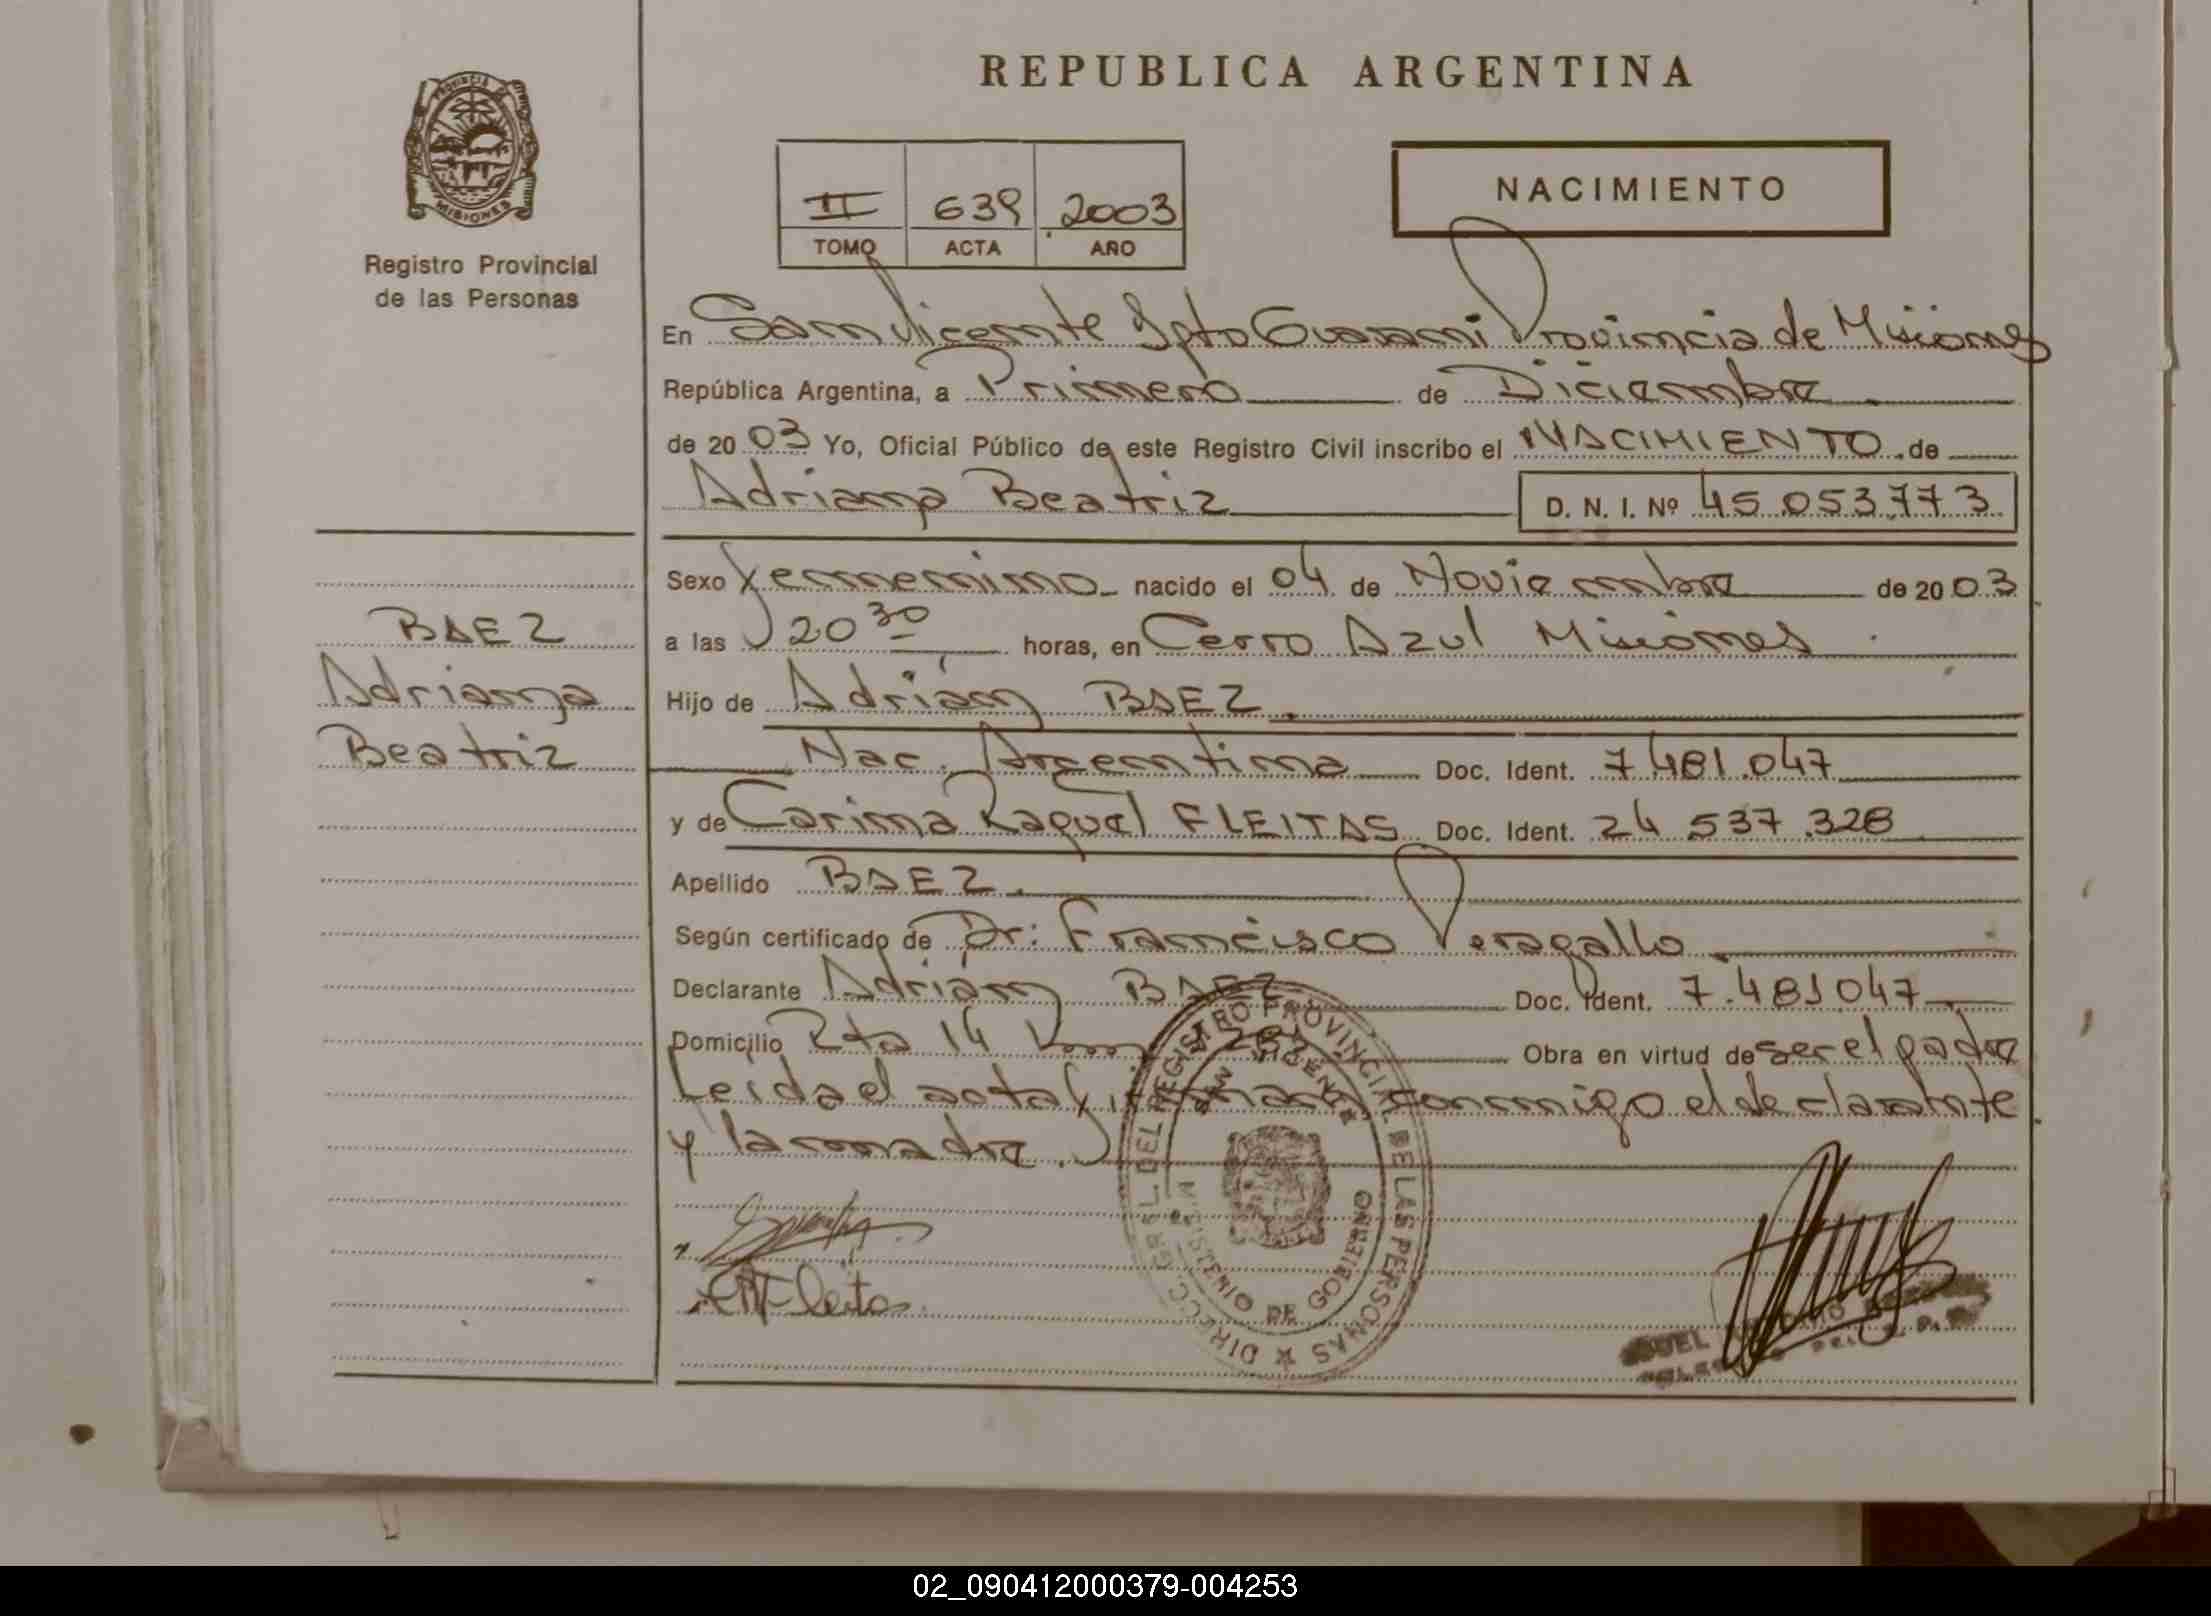 REPUBLICA ARGENTINA
PROVINCIA DE
MISIONES
Registro Provincial
de las Personas
II 639 2003
TOMO ACTA AÑO
NACIMIENTO
En San Vicente Dpto Guarani Provincia de Misiones
República Argentina, a Primero de Diciembre
de 2003 Yo, Oficial Público de este Registro Civil inscribo el NACIMIENTO de
Adriana Beatriz D. N. I. Nº 45.053.773
Sexo femenino nacido el 04 de Noviembre de 2003
a las 20 30 horas, en Cerro Azul Misiones
Hijo de Adrián BAEZ
Nac. Argentina Doc. Ident. 7.481.047
y de Carina Raquel FLEITAS Doc. Ident. 24.537.328
Apellido BAEZ
Según certificado de Dr: Francisco Peragallo
Declarante Adrián BAEZ Doc. Ident. 7.481047
Domicilio Rta 14 Km Obra en virtud de ser el padre
Leida el acta firman conmigo el declarante
y la madre.
BAEZ
Adriana
Beatriz
DIRECC. GRAL. DEL REGISTRO PROVINCIAL DE LAS PERSONAS
SAN VICENTE
MINISTERIO DE GOBIERNO
Fleitas
02_090412000379-004253